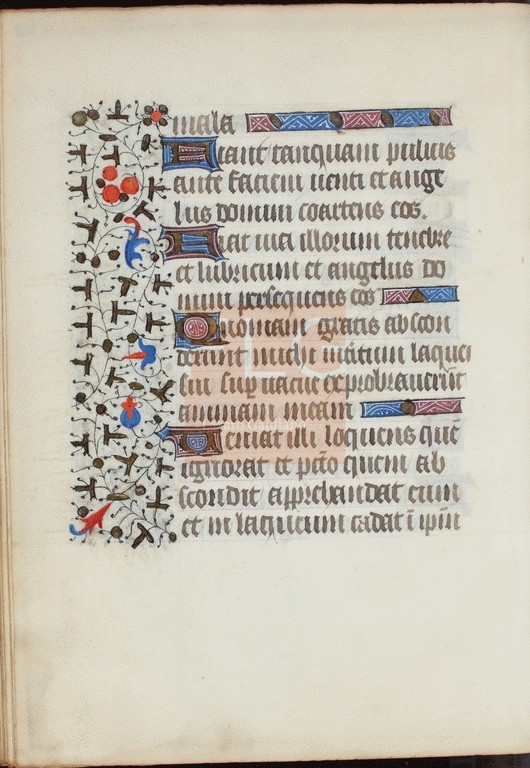 mala
Fiant tanquam puluis
ante faciem uenti et ange
lus domini coartens eos.
Fiat uia illorum tenebre
et lubricum et angelus do
mini persequens eos
Quoniam gratis abscon
derunt michi interitum laquei
sui supuacue exprobrauerūt
animam meam
Ueniat illi loquens quē
ignorat et pc̄to quem ab
scondit apprehendat eum
et in laqueum cadat ī ipm̄